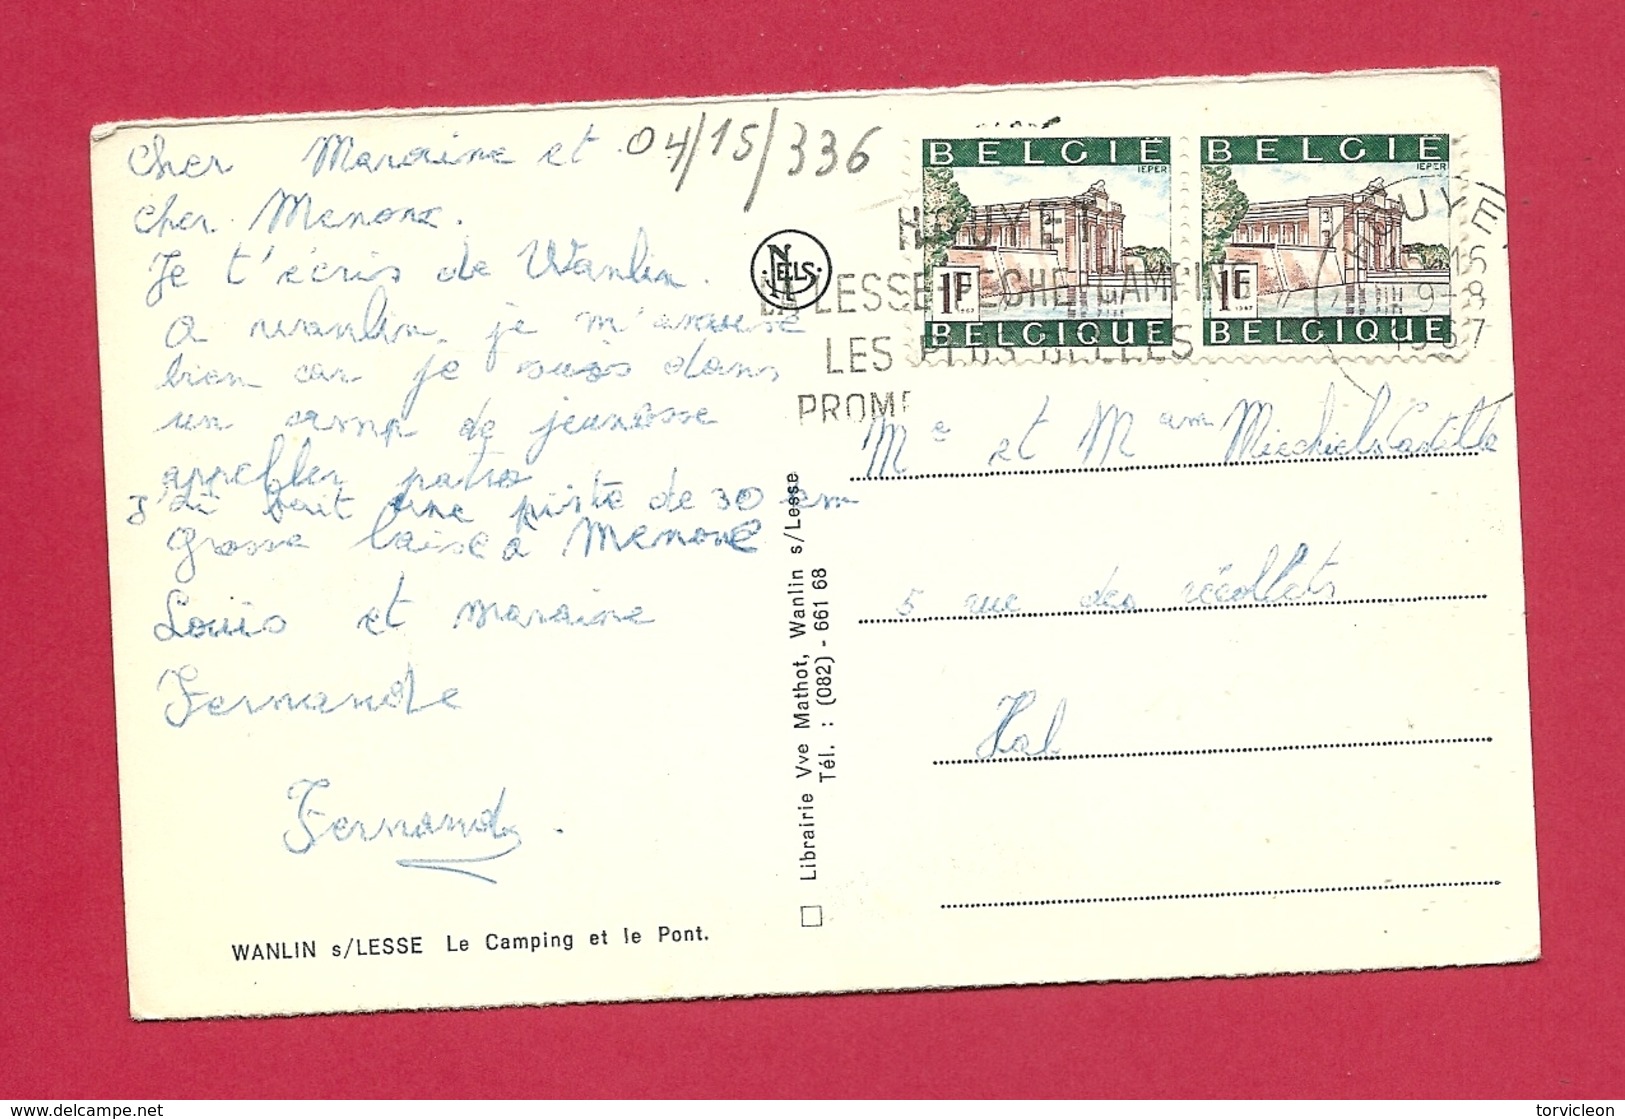 Cher Maraine et
04/15/336
cher Menone.
Je t'écris de Wanlin.
A wanlin, je m'amuse
bien car je suis dans
un camp de jeunesse
appeller patro
J'ai fait une piste de 30 km
grosse baise à Menone
Louis et maraine
Fernande
Fernand
WANLIN s/LESSE Le Camping et le Pont.
NELS
Librairie Vve Mathot, Wanlin s/Lesse
Tél. : (082) - 661 68
BELGIË
IEPER
1F
1967
BELGIQUE
BELGIË
IEPER
1F
1967
BELGIQUE
HOUYET
LA LESSE-PECHE-CAMPING
LES PLUS BELLES
PROME
HOUYE
9-8
1967
Mr et Mam Miechiels
5 rue des récollets
Hal
torvicleon
© delcampe.net